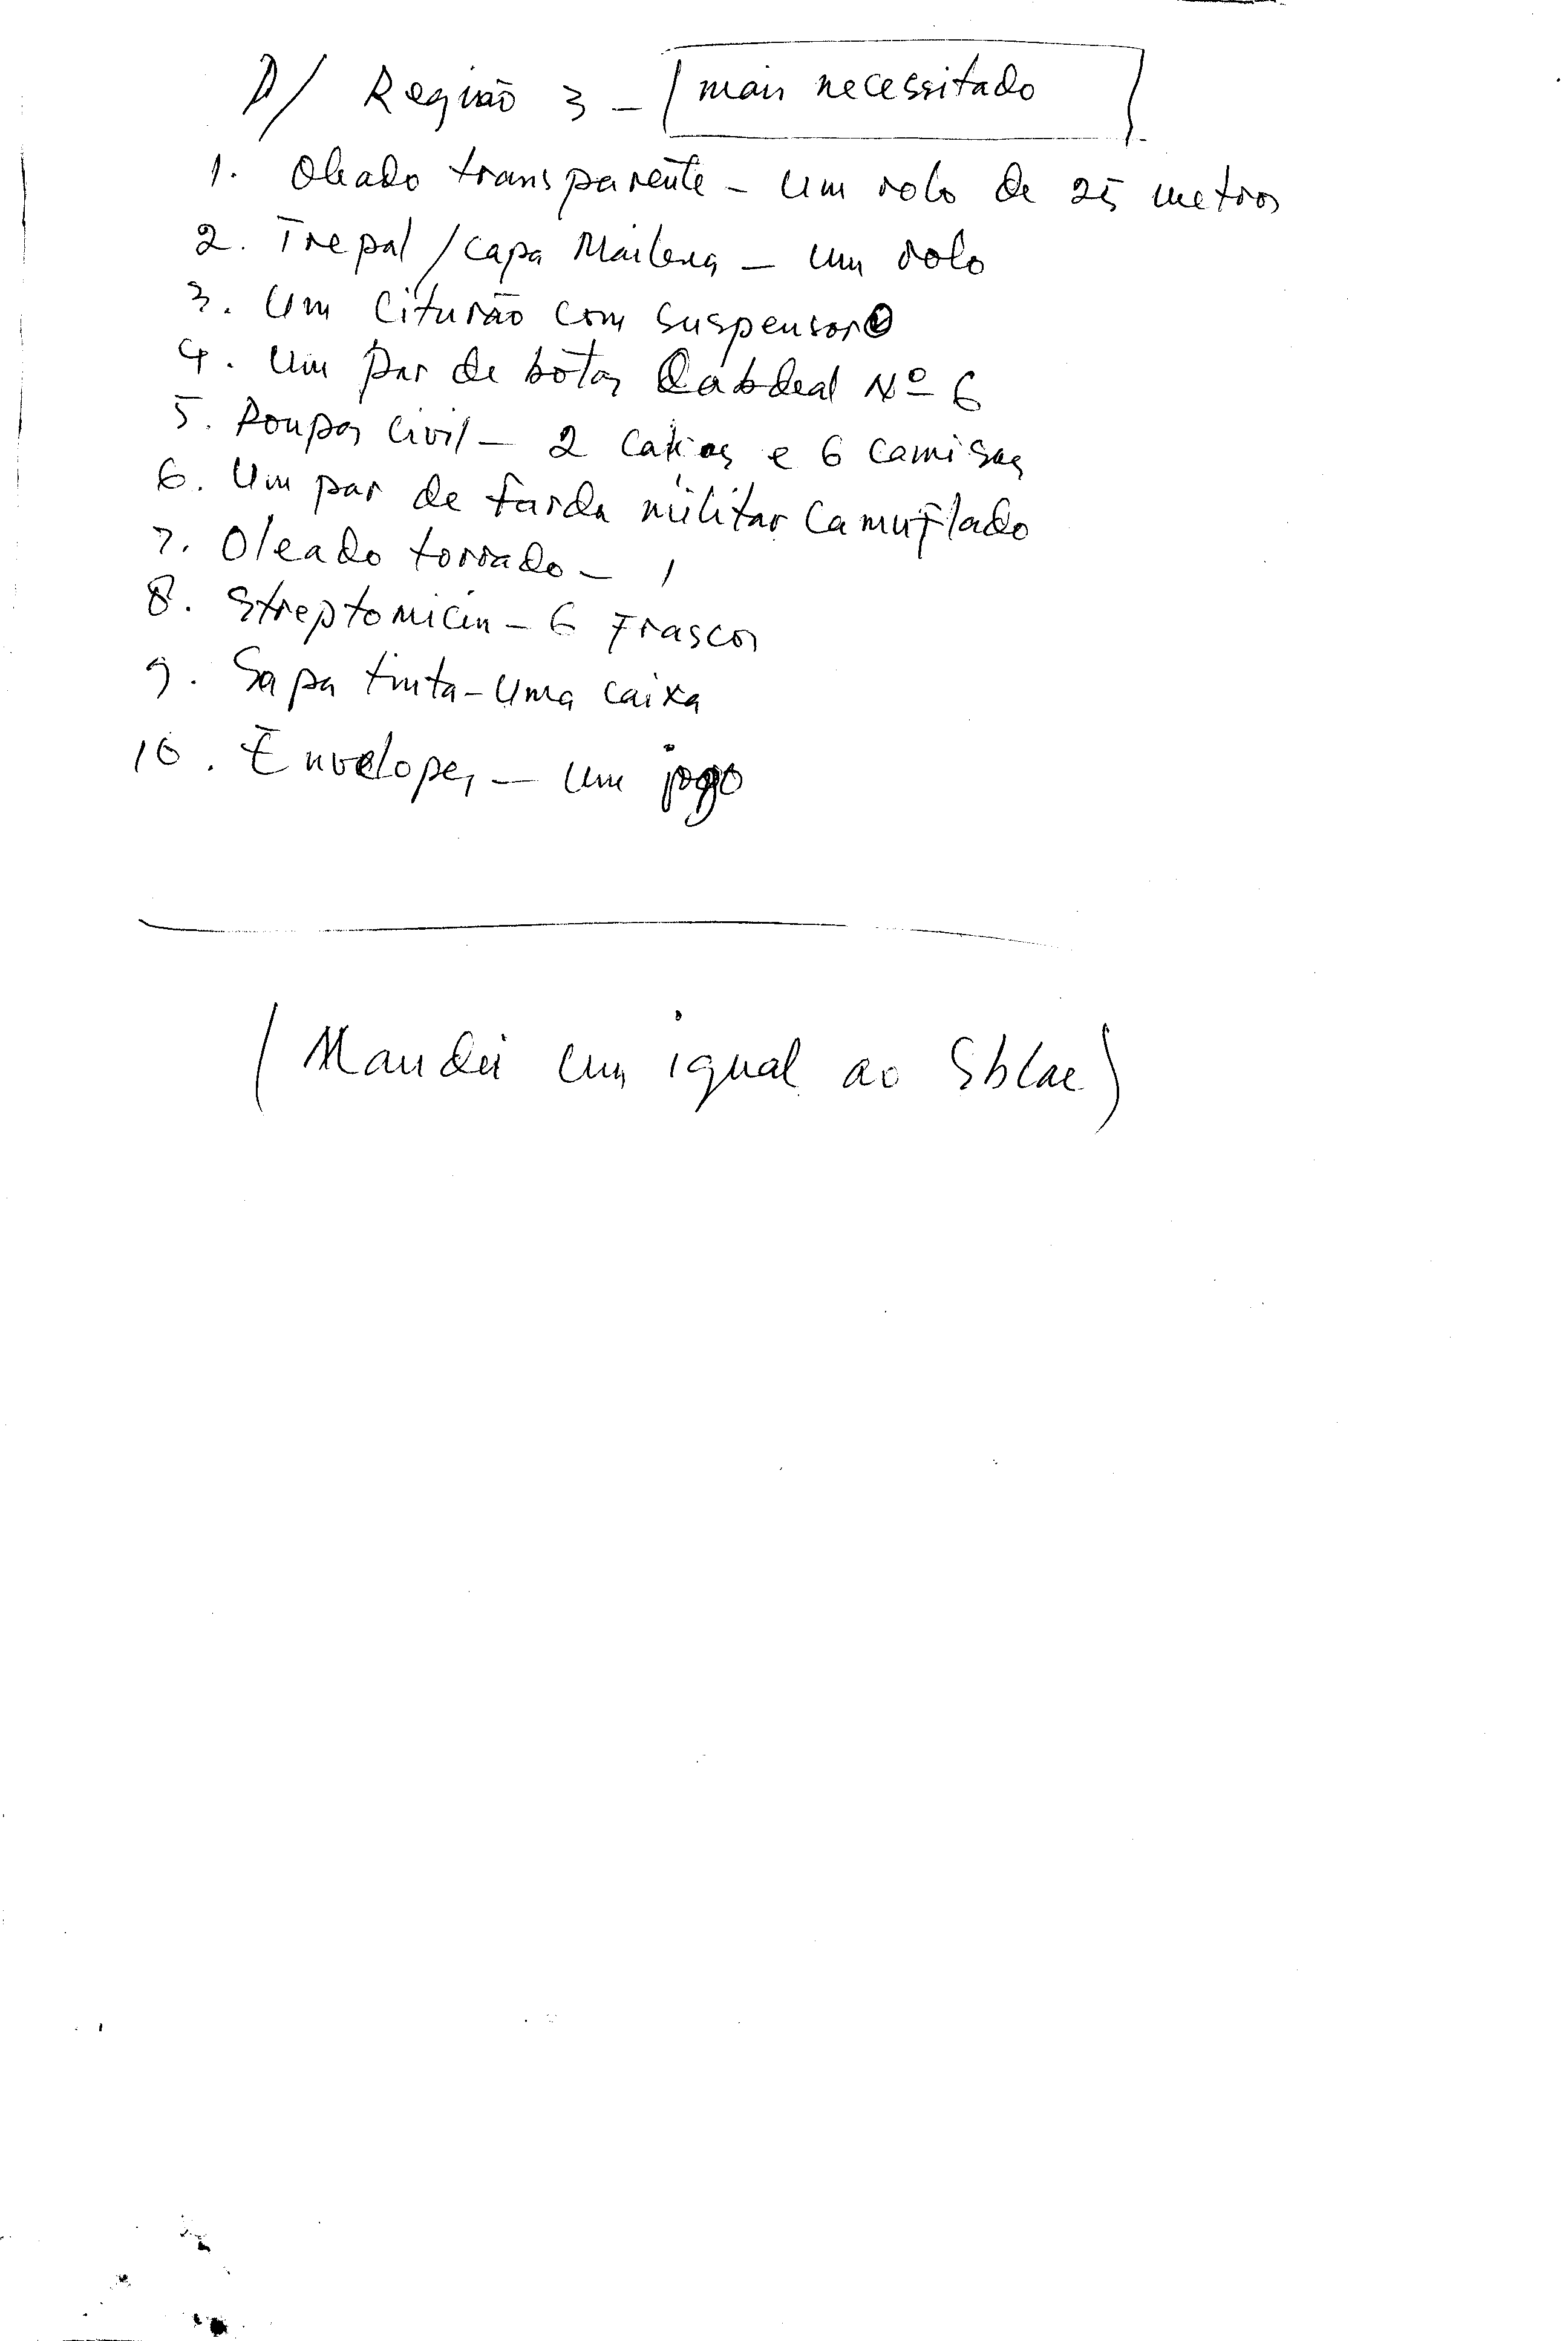 P/ Região 3 - mais necessitado
1. Oleado transparente - um rolo de 25 metros
2. Trepal / capa - um rolo
3. Um citurão com suspensore
4. Um par de botas Nº 6
5. Roupas civil - 2 calças e 6 camisas
6. Um par de farda militar camuflado
7. Oleado torrado - 1
8. Streptomicin - 6 Frascos
9. Sapa tinta - uma caixa
10. Envelopes - um jogo
(Mandei um igual ao )